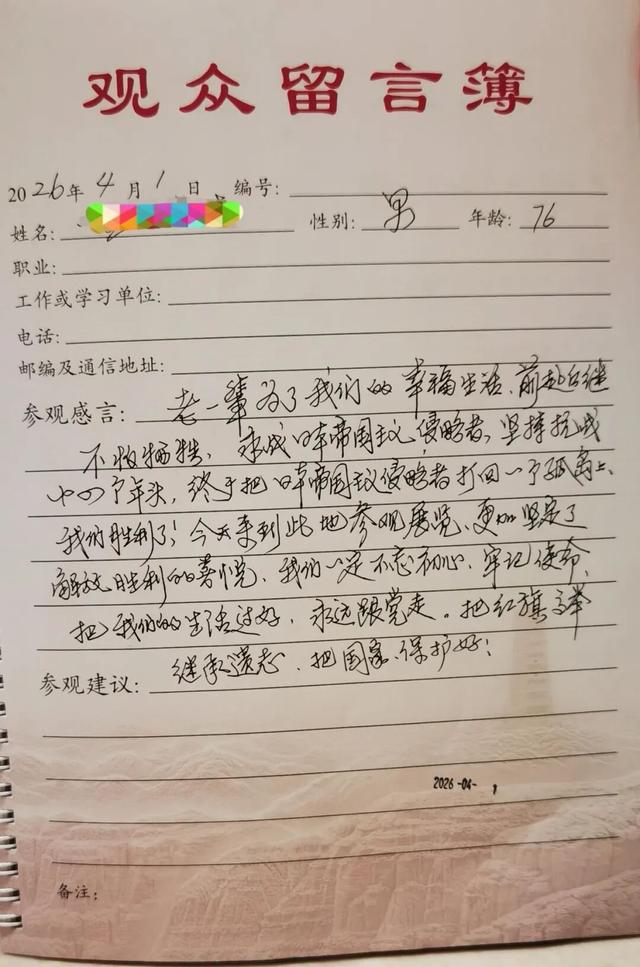 观众留言簿
2026年4月1日 编号:
姓名: 性别: 男 年龄: 76
职业:
工作或学习单位:
电话:
邮编及通信地址:
参观感言: 老一辈为了我们的幸福生活、前赴后继
不怕牺牲、 日本帝国主义侵略者、坚持抗战
十四个年头、终于把日本帝国主义侵略者打回一个孤岛上、
我们胜利了!今天来到此地参观展览、更加坚定了
解放胜利的喜悦、我们一定不忘初心、牢记使命、
把我们的生活过好、永远跟党走。把红旗高举
继承遗志、把国家保护好!
参观建议:
2026-04- 1
备注: